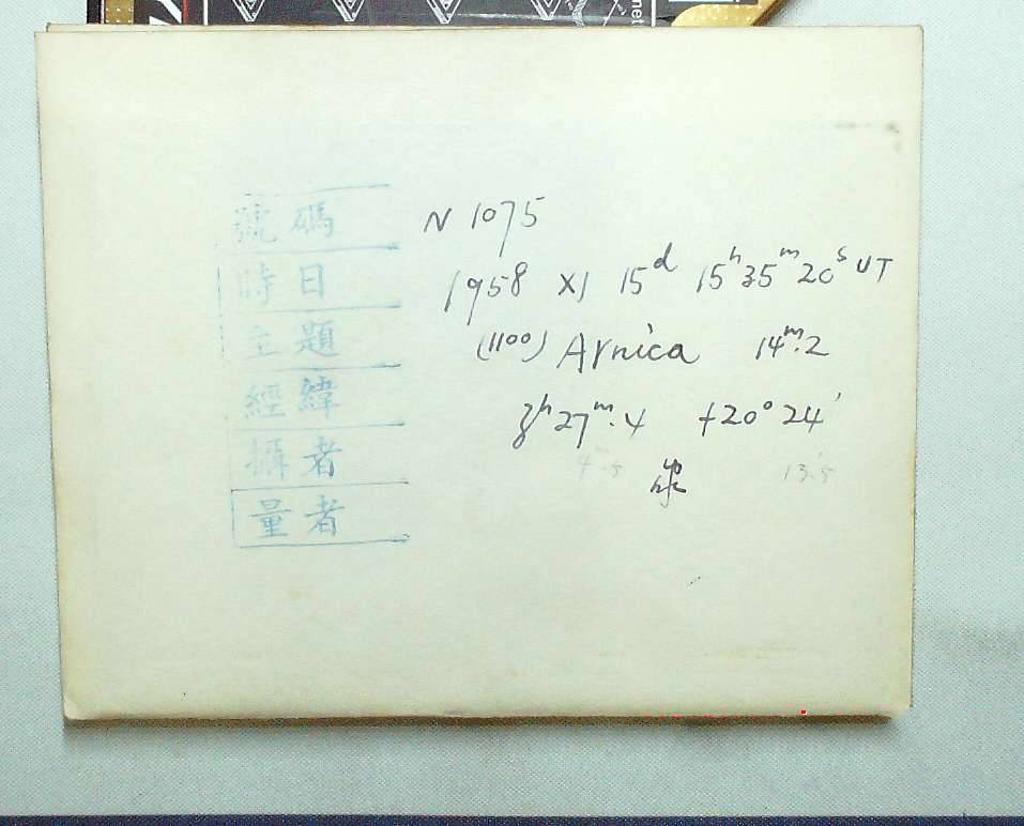 號碼 N 1075
時日 1958 XI 15ᵈ 15ʰ35ᵐ20ˢ UT
主題 (1100) Arnica 14ᵐ.2
經緯 3ʰ27ᵐ.4 +20° 24'
攝者
4ᵐ.5 13'.5
量者
net